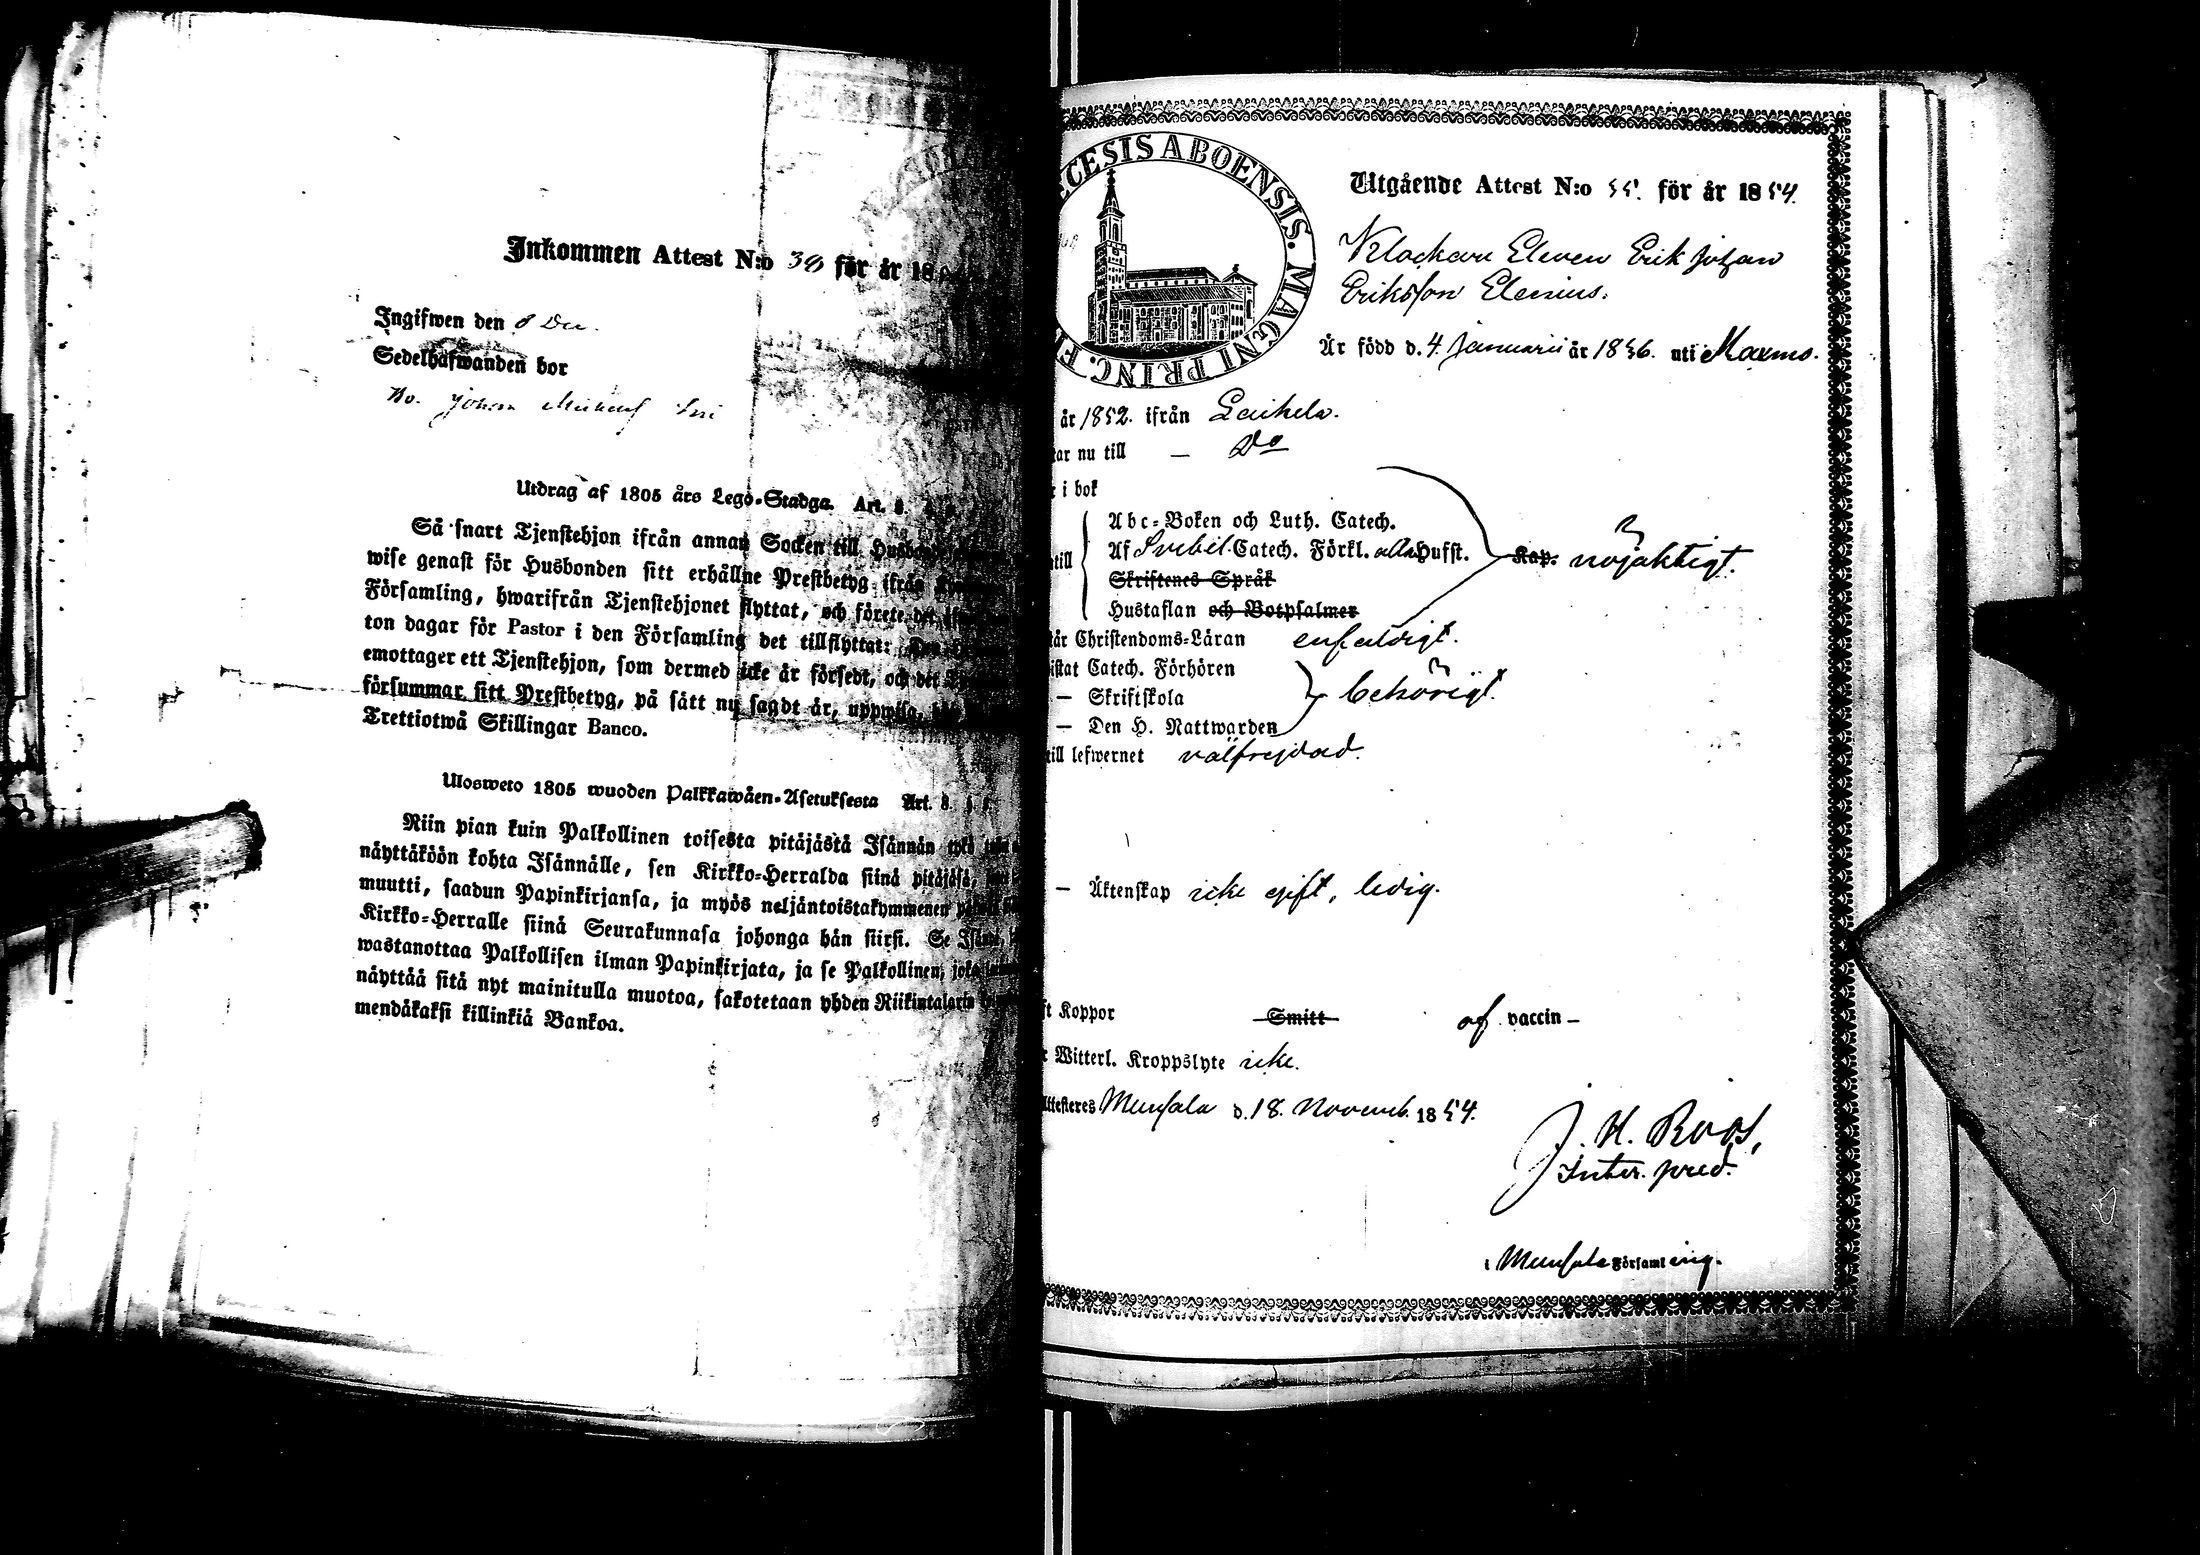 Inkommen Attest N:o 39 för år 18
Ingifwen den 8 Dec.
Sedelhafwanden bor
Johan
Utdrag af 1805 års Lego-Stadga. Art. 8.
Så snart Tjenstehjon ifrån annan Socken till
wise genast för Husbonden sitt erhållne Prestbetyg ifrån
Församling, hwarifrån Tjenstehjonet flyttat, och förete det
ton dagar för Pastor i den Församling det tillflyttat:
emottager ett Tjenstehjon, som dermed icke är försedt, och det
försummar sitt Prestbetyg, på sätt nu sagdt är, uppwisa,
Trettiotwå Skillingar Banco.
Ulosweto 1805 wuoden Palkkawäen-Asetuksesta Art. 8.
Niin pian kuin Palkollinen toisesta pitäjästä Isännän tykö
näyttäköön kohta Isännälle, sen Kirkko-Herralda siinä pitäjäsä,
muutti, saadun Papinkirjansa, ja myös neljäntoistakymmenen
Kirkko-Herralle siinä Seurakunnasa johonga hän siirsi. Se
wastanottaa Palkollisen ilman Papinkirjata, ja se Palkollinen, joka
näyttää sitä nyt mainitulla muotoa, sakotetaan yhden Riikintalarin
mendäkaksi killinkiä Bankoa.
ECESIS ABOENSIS. MAGNI PRINC. F
Utgående Attest N:o 55. för år 1854.
Klockare Eleven Erik Johan
Eriksson Elenius.
Är född d. 4 Januarii år 1836. uti Maxmo.
år 1852. ifrån Laihela.
tar nu till — Do
i bok
Abc-Boken och Luth. Catech.
till Af Svebil. Catech. Förkl. alla Hufst. Kap. nöjaktigt.
Skriftenes Språk
Hustaflan och Botpsalmer
Christendoms-Läran enfaldigt.
istat Catech. Förhören
— Skriftskola behörigt.
— Den H. Nattwarden
till lefwernet välfrejdad.
— Äktenskap icke gift, ledig.
ft Koppor Smitt af vaccin —
r Witterl. Kroppslyte icke.
Attesteres Munsala d. 18. Novemb. 1854.
J. H. Roos,
Inter. pred.
i Munsala Församling.